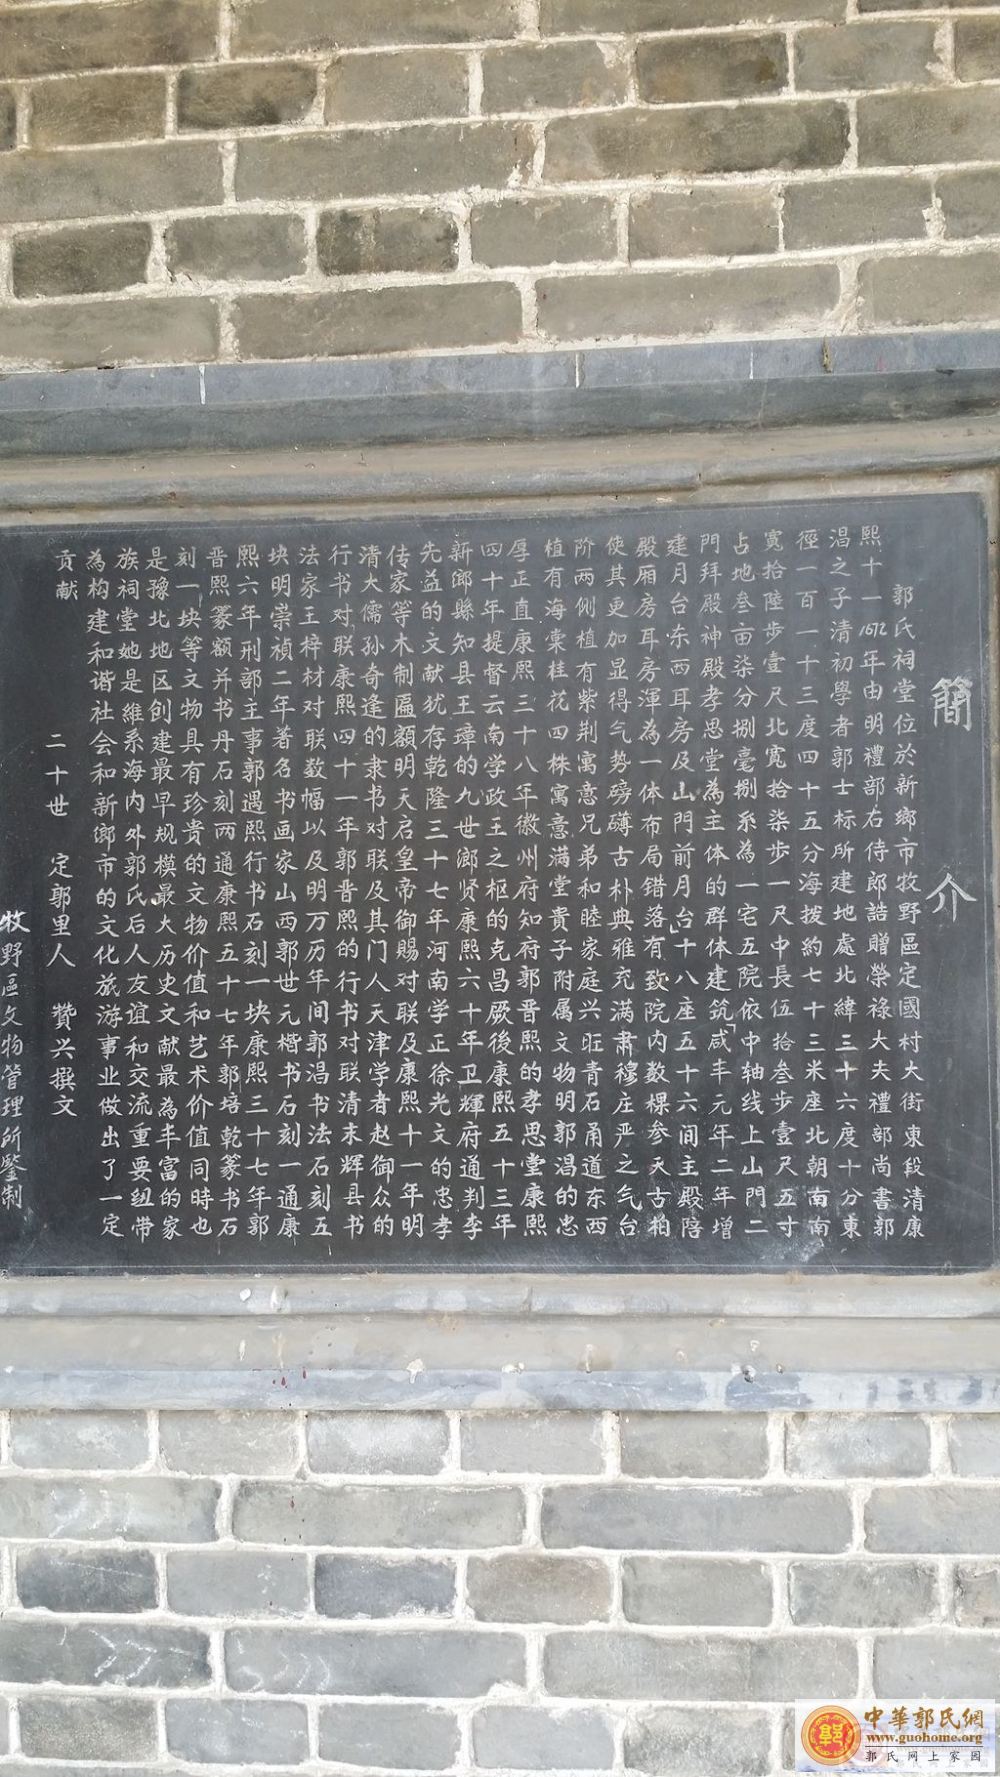 簡介
郭氏祠堂位於新鄉市牧野區定國村大街東段清康
熙十一1672年由明禮部右侍郎誥贈榮祿大夫禮部尚書郭
淐之子清初學者郭士标所建地處北緯三十六度十分東
徑一百一十三度四十五分海拔約七十三米座北朝南南
寬拾陸步壹尺北寬拾柒步一尺中長伍拾叁步壹尺五寸
占地叁亩柒分捌毫捌系為一宅五院依中轴线上山門二
門拜殿神殿孝思堂為主体的群体建筑「咸丰元年二年增
建月台东西耳房及山門前月台」十八座五十六间主殿陪
殿厢房耳房渾為一体布局错落有致院内数棵参天古柏
使其更加显得气势磅礴古朴典雅充满肃穆庄严之气台
阶两侧植有紫荆寓意兄弟和睦家庭兴旺青石甬道东西
植有海棠桂花四株寓意满堂貴子附属文物明郭淐的忠
厚正直康熙三十八年徽州府知府郭晋熙的孝思堂康熙
四十年提督云南学政王之枢的克昌厥後康熙五十三年
新鄉縣知县王璋的九世鄉贤康熙六十年卫輝府通判李
先益的文献犹存乾隆三十七年河南学正徐光文的忠孝
传家等木制匾額明天启皇帝御賜对联及康熙十一年明
清大儒孙奇逢的隶书对联及其门人天津学者赵御众的
行书对联康熙四十一年郭晋熙的行书对联清末辉县书
法家王梓材对联数幅以及明万历年间郭淐书法石刻五
块明崇禎二年著名书画家山西郭世元楷书石刻一通康
熙六年刑部主事郭遇熙行书石刻一块康熙三十七年郭
晋熙篆额并书丹石刻两通康熙五十七年郭培乾篆书石
刻一块等文物具有珍貴的文物价值和艺术价值同時也
是豫北地区创建最早规模最大历史文献最為丰富的家
族祠堂她是維系海内外郭氏后人友谊和交流重要纽带
為构建和谐社会和新鄉市的文化旅游事业做出了一定
贡献
二十世 定郭里人 贊兴撰文
牧野區文物管理所鑒制
中華郭氏網
www.guohome.org
郭氏网上家园